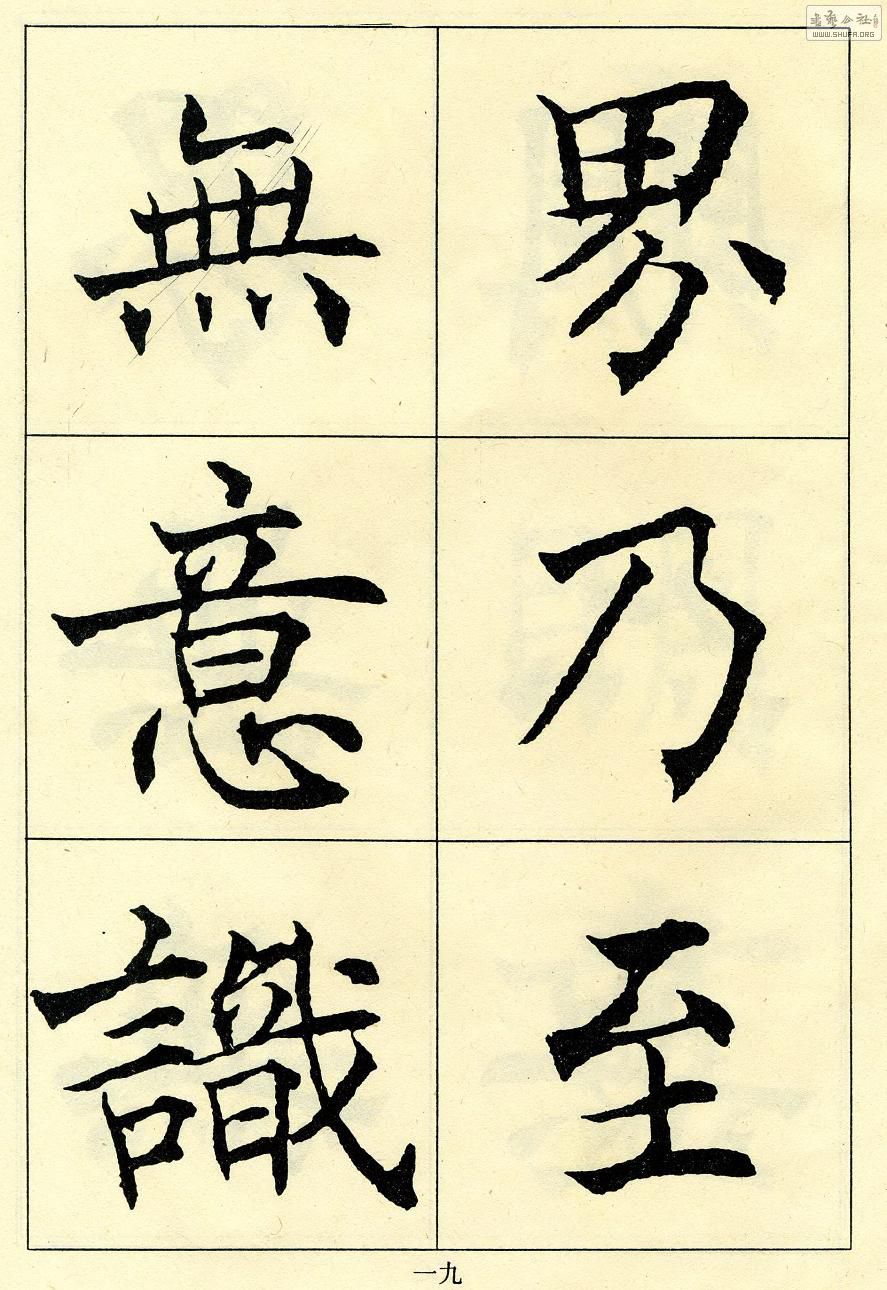 界乃至
無意識
一九
書艺公社
WWW.SHUFA.ORG